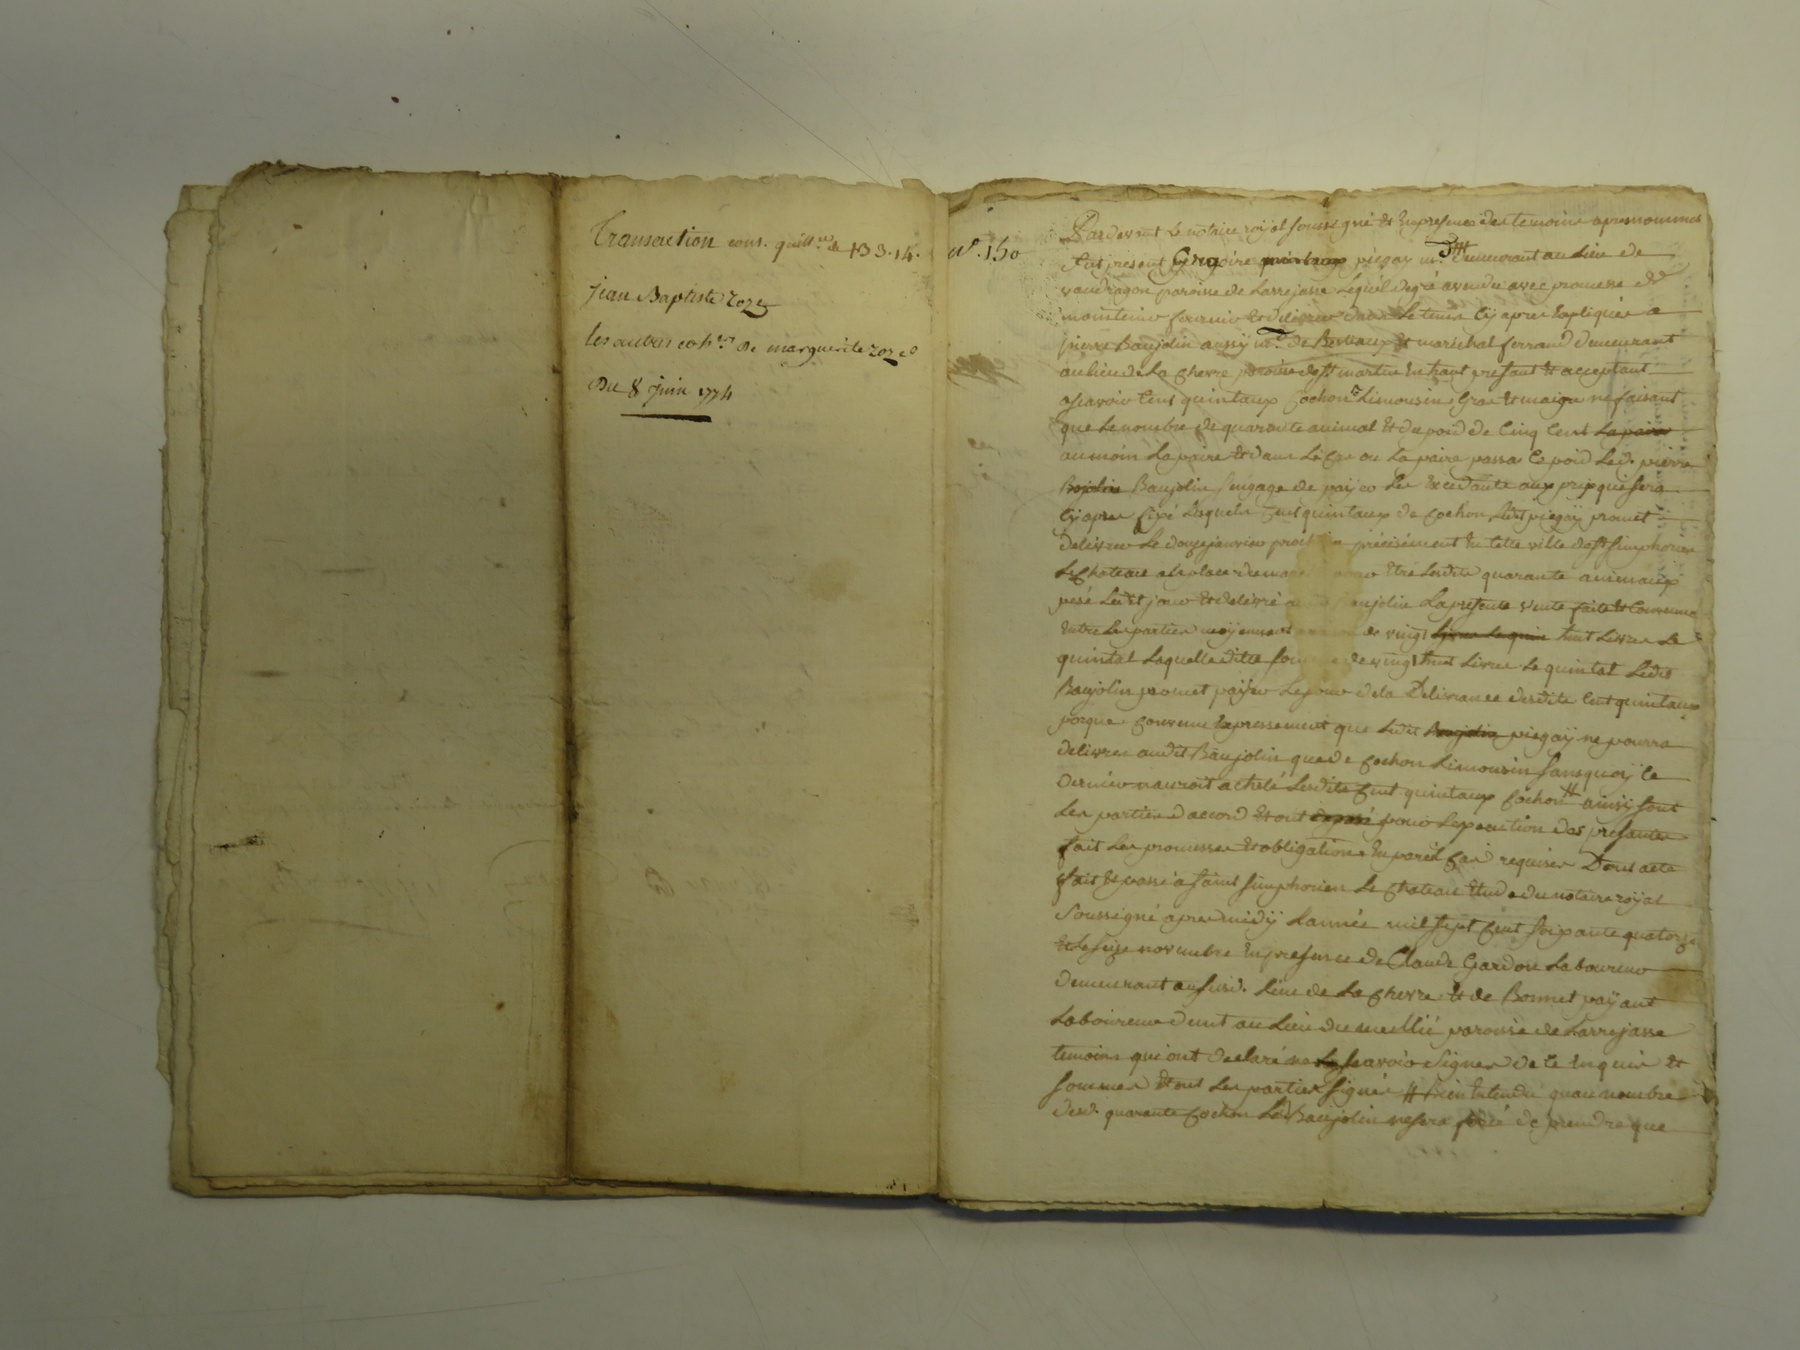 Transaction cont. quitt.ce de #33.14.
Jean Baptiste Zoze
les autres coh.ers de marguerite Zoze
Du 8 juin 1774
n°. 150
Pardevant Le notaire royal soussigné & En presence des temoins apres nommes
fut present piegay m.d demeurant au Lieu de
vaudragon paroisse de Larrejasse Lequel degré a vendu avec promesse de
maintenir fournir & delivrer dans Le tems Cy apres Expliquér a
pierre Baujolin aussy m.d de Bestiaux & marichal ferrand demeurant
au lieu de La Chevre paroisse de st martin En haut present & acceptant
Scavoir Cent quintaux Cochons Limousin Gras & maigre ne faisant
que Le nombre de quarante animal & du poid de Cinq Cent La paire
au moin La paire & dans Le Cas ou La paire passa Ce poid Led. pierre
Baujolin Baujolin sengage de payer Les Excedants aux prix qui sera
Cy apres fixé Lesquels Cent quintaux de Cochon Ledt piegay promet
Delivrer Le douze janvier précisément En Cette ville de st simphorien
Le Chateau a la place du pour Etre Lesdits quarante animaux
pesé Ledt jour & delivré Baujolin La presente vente faite & Convenue
Entre Les parties moyennant de vingt huit Livres Le
quintal Laquelle ditte somme de vingt huit Livres Le quintal Ledt
Baujolin promet payer Le jour de la Delivrance desdits Cent quintaux
porque Convenu Expressement que Ledt Baujolin piegay ne pourra
delivrer audit Baujolin que de Cochon Limousin sans quoy Ce
Dernier nauroit acheté Lesdits Cent quintaux Cochon # ainsy sont
Les parties d'accord & ont pour Lexecution des presentes
fait Les promesses & obligations En pareil Cas requises Dont acte
fait & passé a saint simphorien Le Chateau Etude du notaire royal
Soussigné apres midy Lannée mil sept Cent soixante quatorze
& Le seize novembre En presence de Claude Gardon Laboureur
demeurant au susd. Lieu de La Chevre & de Bonnet payant
Laboureur demt au Lieu du meillié paroisse de Larrejasse
temoins qui ont declaré ne Le scavoir signer de Ce Enquis &
sommes & ont Les parties signér # Bien Entendu quau nombre
desd. quarante Cochon Led Baujolin ne sera forcé de prendre que